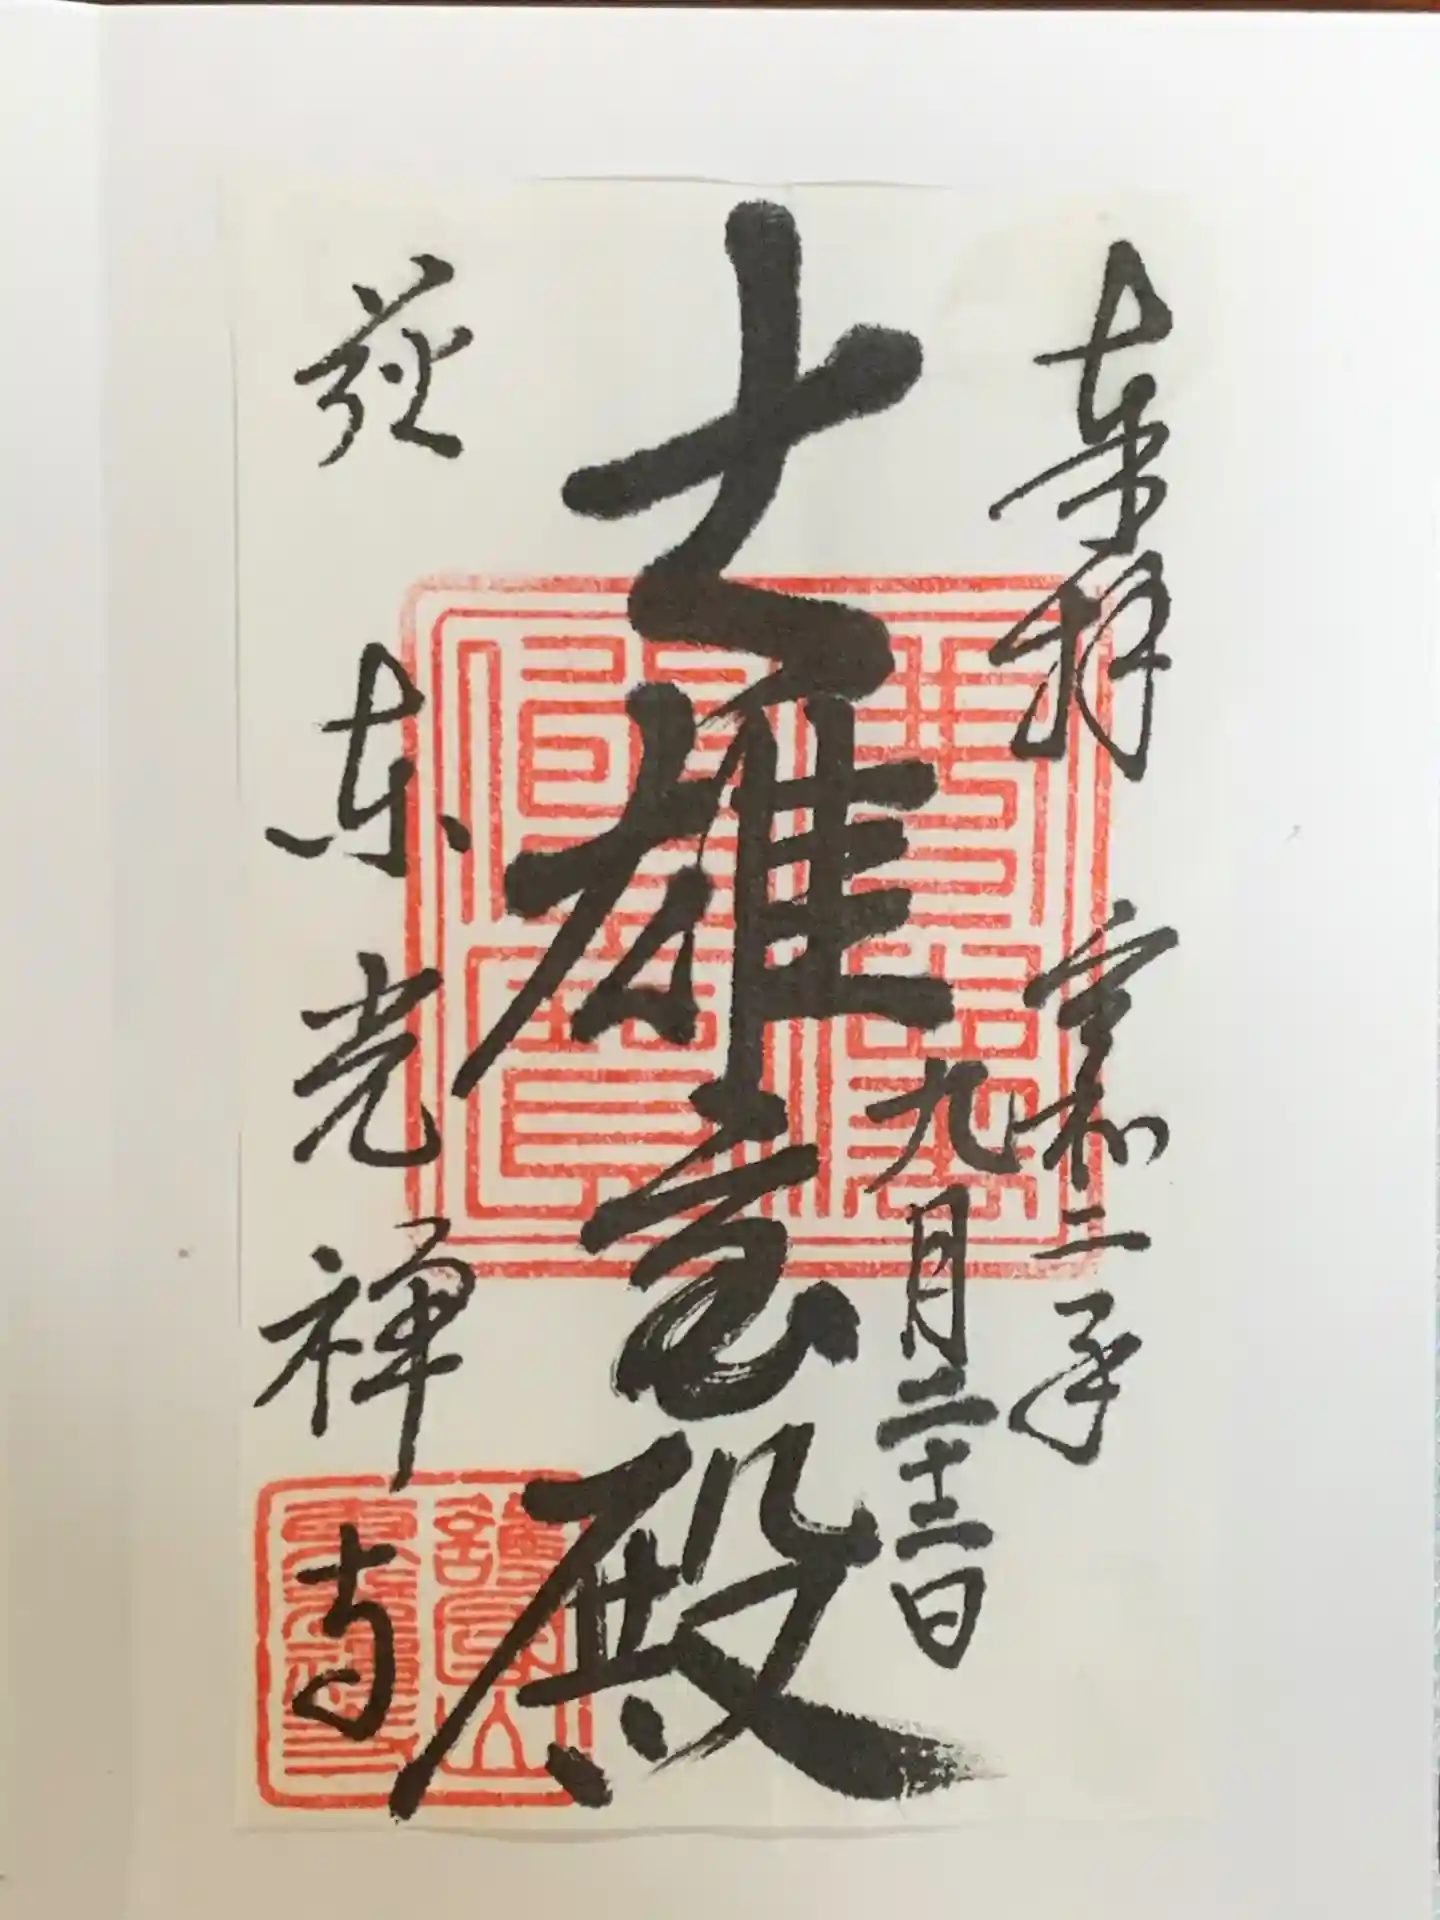 奉拝 令和二年
九月二十二日
大雄宝殿
萩 東光禅寺
護國山